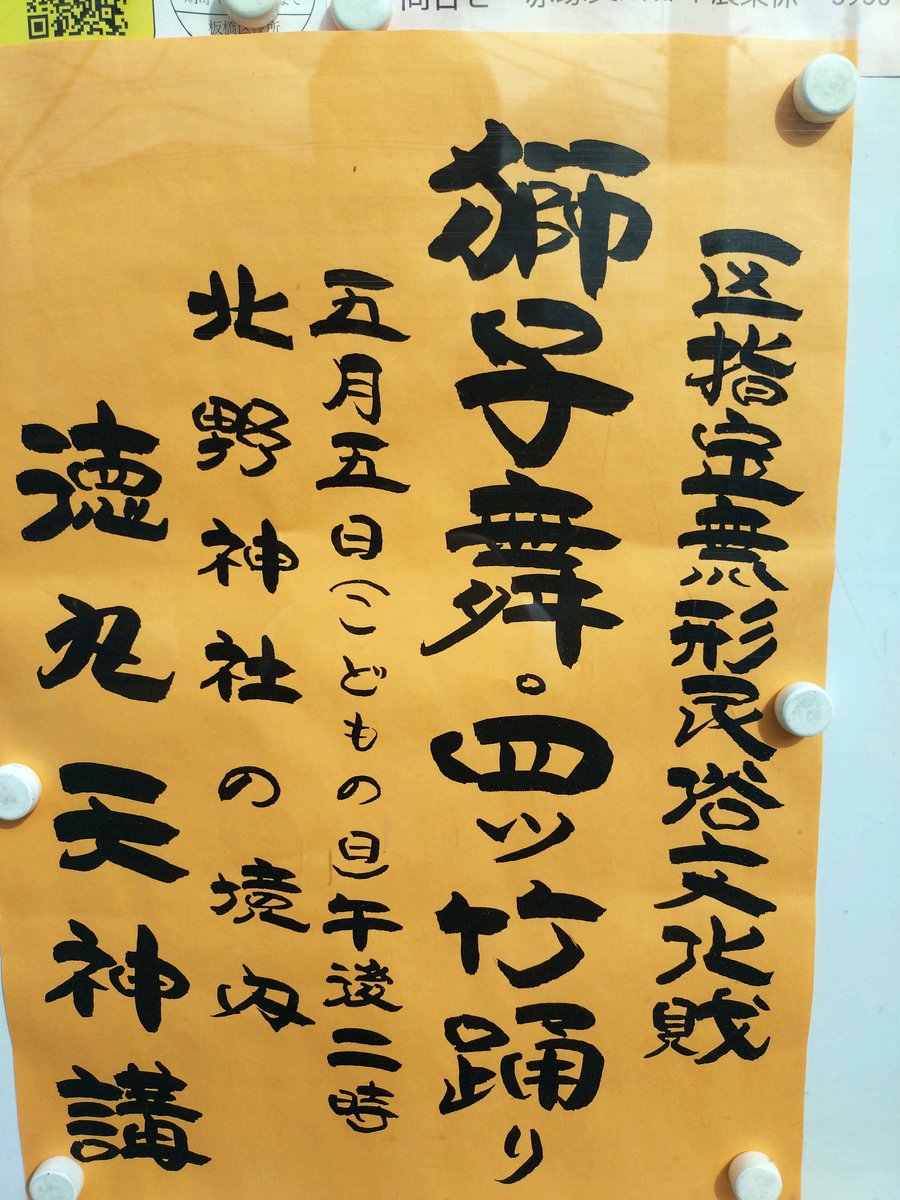 板橋区役所
区指定無形民俗文化財
獅子舞。四ツ竹踊り
五月五日(こどもの日)午後二時
北野神社の境内
徳丸天神講